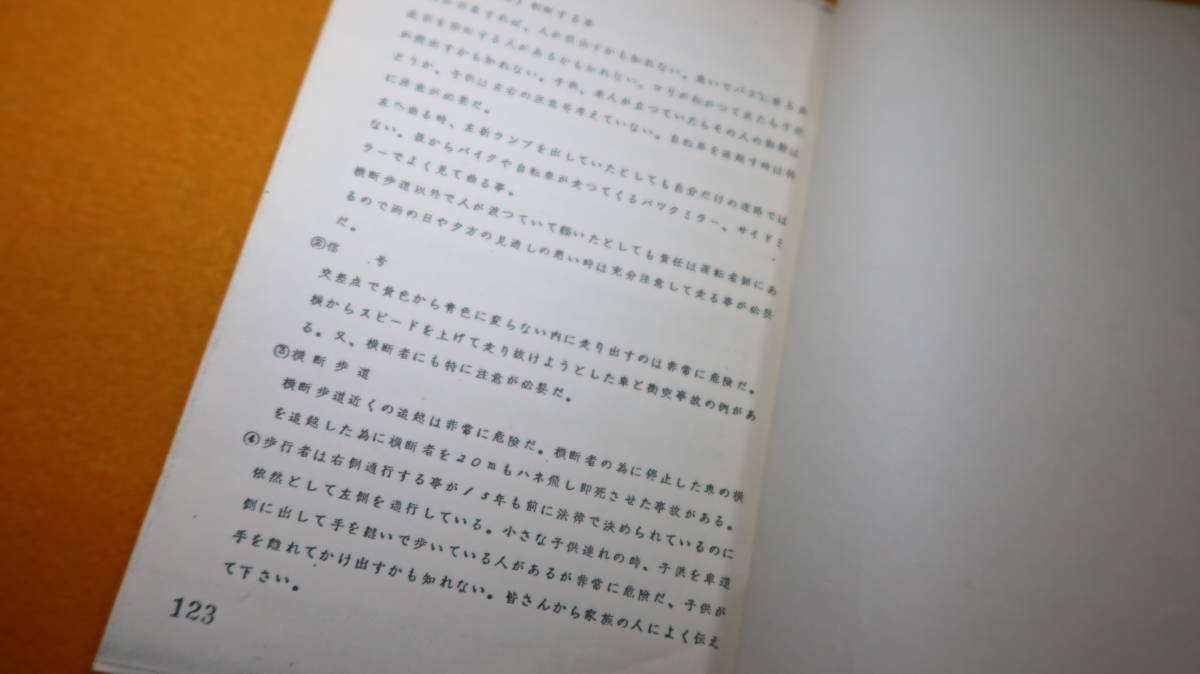 判断する事
すれば、人が飛出すかも知れない。急いでバスに乗る為
直前を横断する人があるかも知れない。マリが転がつて来たら子供
が飛出すかも知れない。子供、老人が立つていたらその人の動勢は
どうか、子供は左右の注意等考えていない。自転車を追越す時は特
に注意が必要だ。
左へ曲る時、左折ランプを出していたとしても自分だけの道路では
ない。後からバイクや自転車が走つてくるバツクミラー、サイドミ
ラーでよく見て曲る事。
横断歩道以外で人が渡つていて轢いたとしても責任は運転者側にあ
るので雨の日や夕方の見通しの悪い時は充分注意して走る事が必要
だ。
②信 号
交差点で黄色から青色に変らない内に走り出すのは非常に危険だ。
横からスピードを上げて走り抜けようとした車と衝突事故の例があ
る。又、横断者にも特に注意が必要だ。
③横断歩道
横断歩道近くの追越は非常に危険だ。横断者の為に停止した車の横
を追越した為に横断者を20mもハネ飛し即死させた事故がある。
④歩行者は右側通行する事が15年も前に法律で決められているのに
依然として左側を通行している。小さな子供連れの時、子供を車道
側に出して手を継いで歩いている人があるが非常に危険だ、子供が
手を離れてかけ出すかも知れない。皆さんから家族の人によく伝え
て下さい。
123